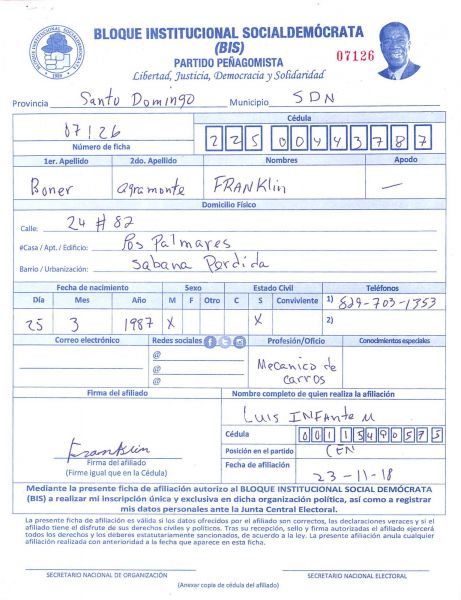 BLOQUE INSTITUCIONAL SOCIALDEMÓCRATA
(BIS)
PARTIDO PEÑAGOMISTA
Libertad, Justicia, Democracia y Solidaridad
07126
Provincia Santo Domingo Municipio SDN
07126
Número de ficha
Cédula
225 0044378 7
1er. Apellido 2do. Apellido Nombres Apodo
Boner agramonte FRANKlin —
Domicilio Físico
Calle: 24 # 82
#Casa / Apt. / Edificio: Pos Palmares
Barrio / Urbanización: Sabana Perdida
Fecha de nacimiento Sexo Estado Civil Teléfonos
Día Mes Año M F Otro C S Conviviente 1) 829-703-1353
25 3 1987 X X 2)
Correo electrónico Redes sociales Profesión/Oficio Conodmientos especiales
@
@
@
Mecanico de
carros
Firma del afiliado Nombre completo de quien realiza la afiliación
Luis INFAnte M
Cédula 00115490575
Franklin
Firma del afiliado
(Firme igual que en la Cédula)
Posición en el partido CEN
Fecha de afiliación 23-11-18
Mediante la presente ficha de afiliación autorizo al BLOQUE INSTITUCIONAL SOCIAL DEMÓCRATA
(BIS) a realizar mi inscripción única y exclusiva en dicha organización política, así como a registrar
mis datos personales ante la Junta Central Electoral.
La presente ficha de afiliación es válida si los datos ofrecidos por el afiliado son correctos, las declaraciones veraces y si el
afiliado tiene el disfrute de sus derechos civiles y políticos. Tras su recepción, sello y firma autorizadas el afiliado ejercerá
todos los derechos y los deberes estatutariamente sancionados, de acuerdo a la ley. La presente afiliación anula cualquier
afiliación realizada con anterioridad a la fecha que aparece en esta ficha.
SECRETARIO NACIONAL DE ORGANIZACIÓN SECRETARIO NACIONAL ELECTORAL
(Anexar copia de cédula del afiliado)